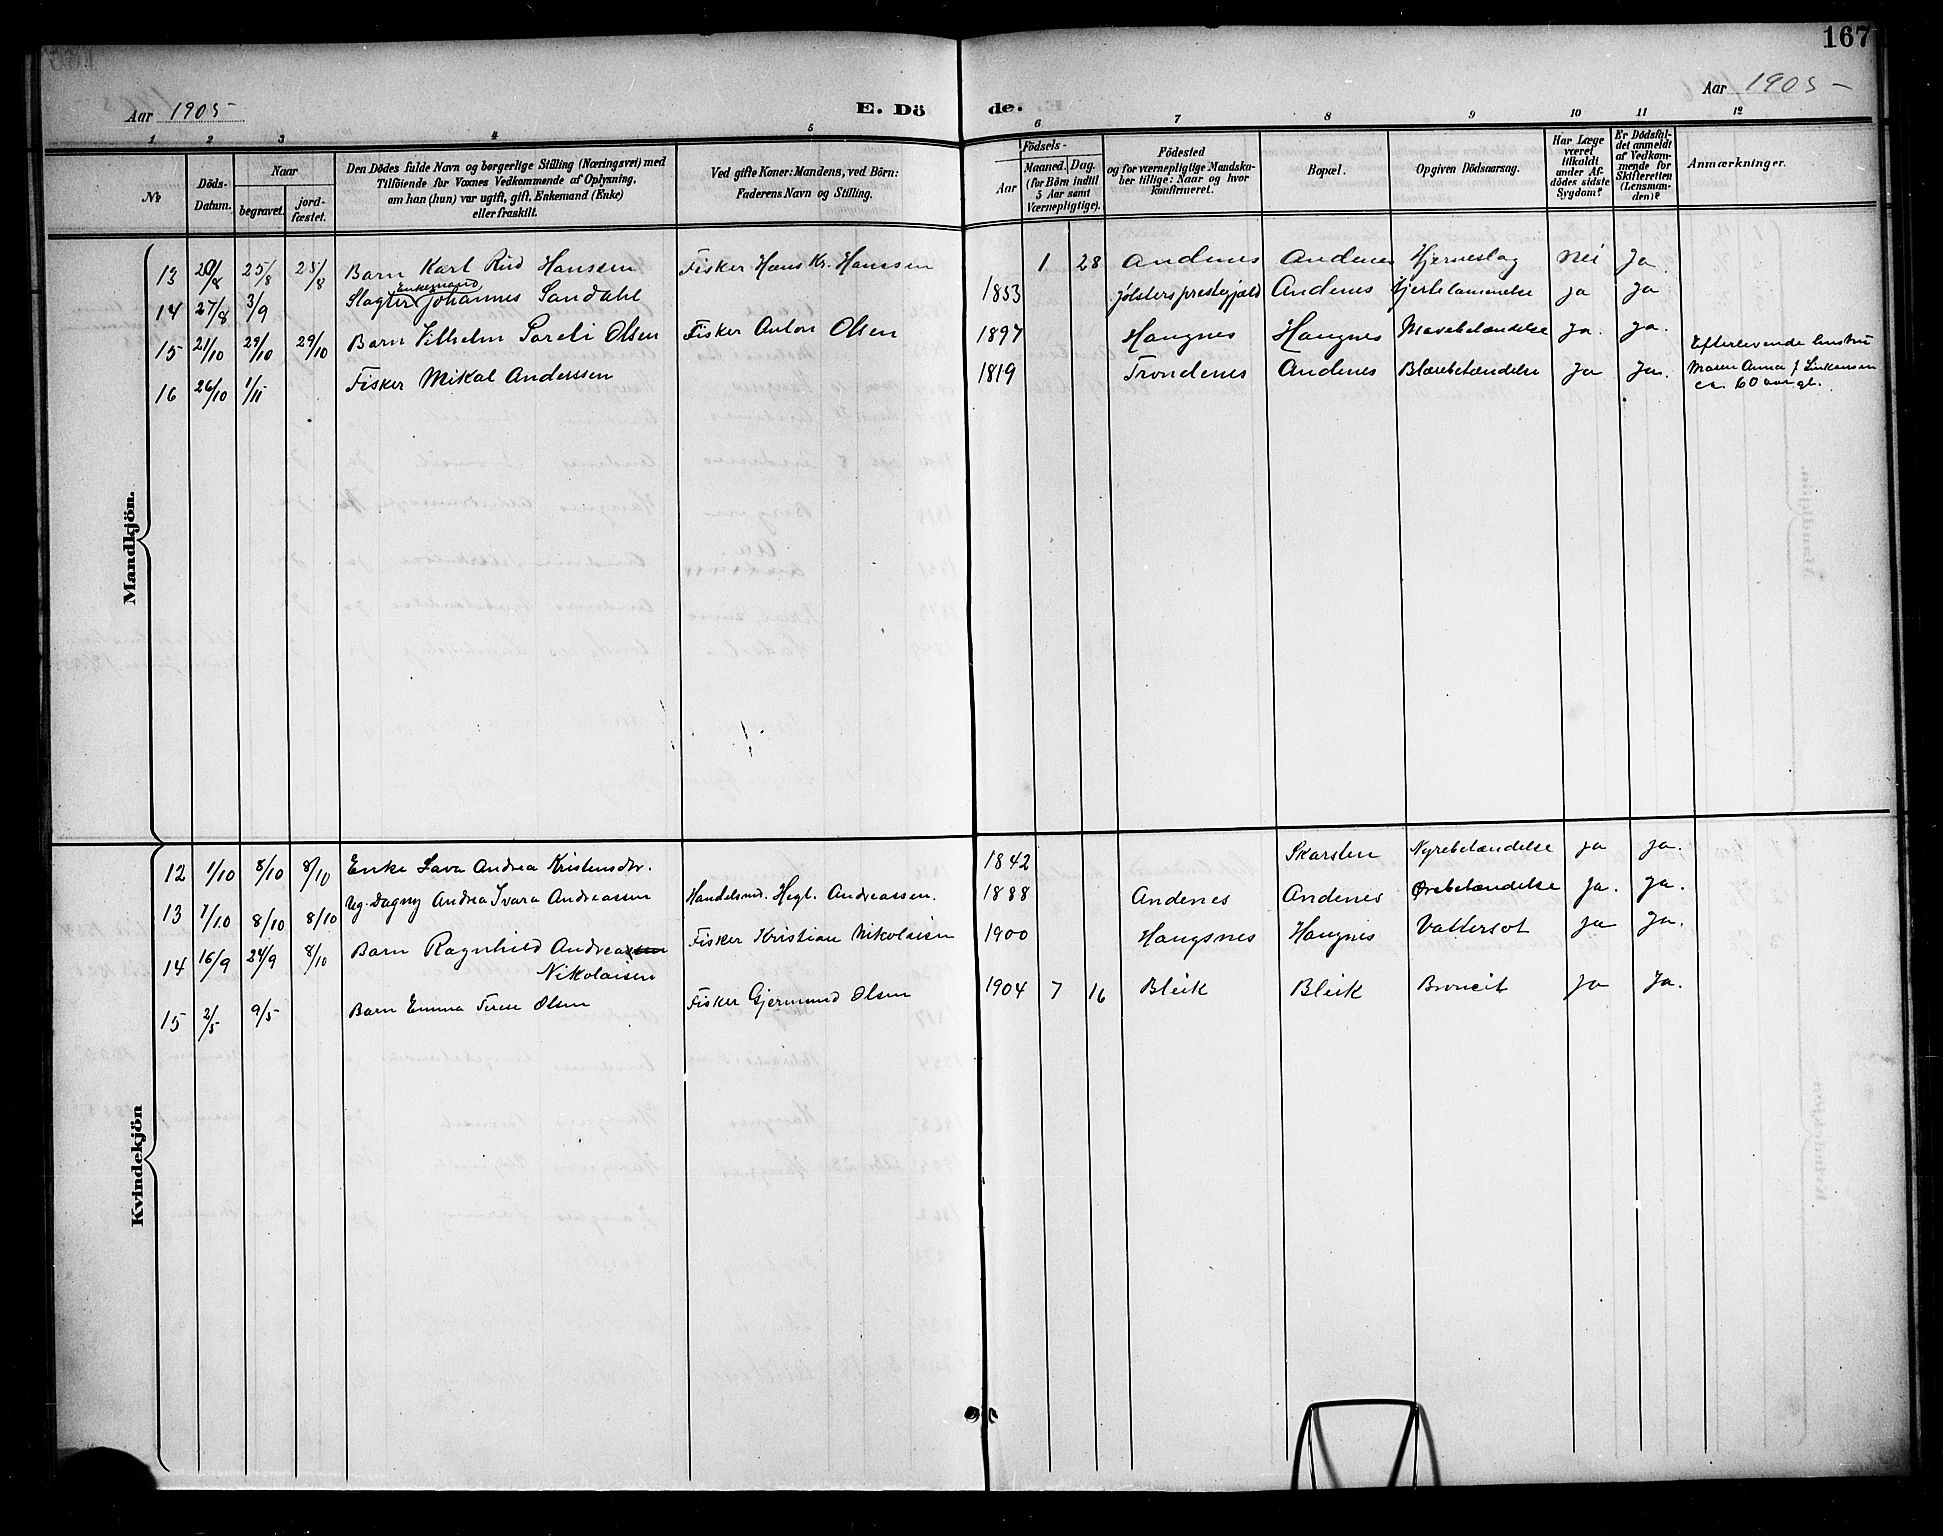 167
Aar 1905
E. Dö de.
Aar 1905 -
1 2 3 4 5 6 7 8 9 10 11 12
No
Döds-Datum.
Naar
begravet.
jord-fæstet.
Den Dödes fulde Navn og borgerlige Stilling (Næringsvei) med
Tilföiende for Voxnes Vedkommende af Oplysning,
om han (hun) var ugift, gift, Enkemand (Enke)
eller fraskilt.
Ved gifte Koner: Mandens, ved Börn:
Faderens Navn og Stilling.
Födsels-
Aar
Maaned. Dag.
(for Börn indtil
5 Aar samt
Værnepligtige).
Födested
og for værnepligtige Mandska-
ber tillige: Naar og hvor
konfirmeret.
Bopæl.
Opgiven Dödsaarsag.
Har Læge
været
tilkaldt
under Af-
dödes sidste
Sygdom?
Er Dödsfal-
det anmeldt
af Vedkom-
mende for
Skifteretten
(Lensman-
den)?
Anmærkninger.
Mandkjön.
13 20/8 25/8 25/8 Barn Karl Rud Hanssen Fisker Hans Kr. Hanssen 1 28 Andenes Andenes Hjerneslag Nei Ja
Enkemand
14 27/8 3/9 Slagter Johannes Sandahl 1853 Jølsters prestegjæld Andenes Hjertelammelse Ja Ja
15 21/10 29/10 29/10 Barn Vilhelm Soreli Olsen Fisker Anton Olsen 1897 Haugnes Haugnes Mavebetændelse Ja. Ja.
16 26/10 1/11 Fisker Mikal Anderssen 1819 Trondenes Andenes Blærebetændelse Ja Ja.
Efterlevende hustru
Maren Anna f.
ca. 60 aar gl.
Kvindekjön
12 1/10 8/10 8/10 Enke Lava Andrea Kristensdtr. 1842 Skarsten Nyrebetændelse Ja Ja.
13 1/10 8/10 8/10 Ug. Dagny Andrea Ivara Andreassen Handelsmd. Hegl. Andreassen. 1888 Andenes Andenes Ørebetændelse Ja. Ja.
14 16/9 24/9 8/10 Barn Ragnhild Andreassen Fisker Kristian Nikolaisen 1900 Haugsnes Haugnes Vattersot Ja Ja.
Nikolaisen
15 2/5 9/5 Barn Emma Terese Olsen Fisker Gjermund Olsen 1904 7 16 Bleik Bleik Broncit Ja Ja.